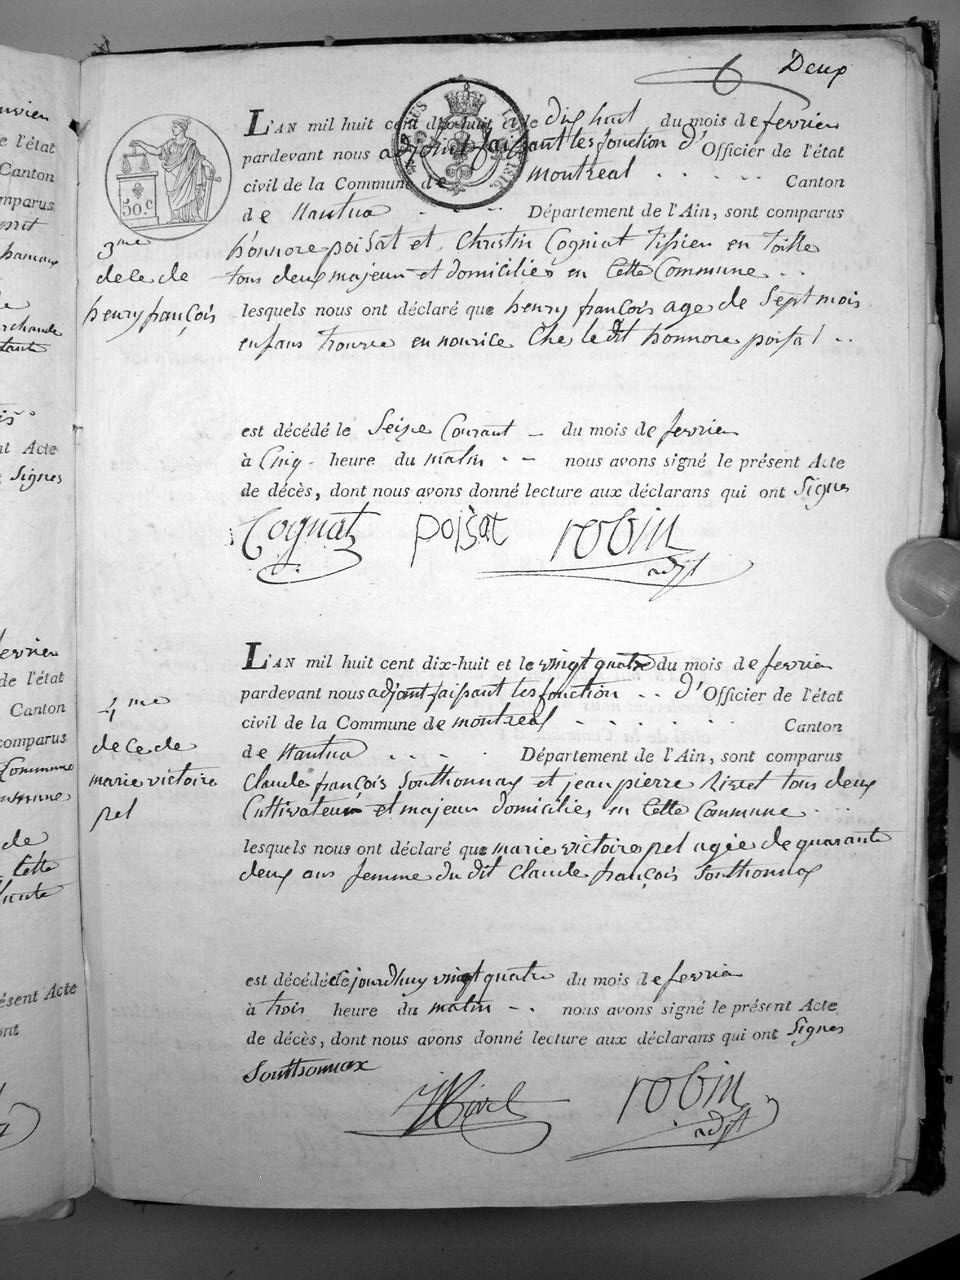 Deux
L'AN mil huit cent dix-huit et le dix huit du mois de fevrier
pardevant nous adjoint faisant les fonction d'Officier de l'état
civil de la Commune de montreal Canton
de Nantua Département de l'Ain, sont comparus
50.c
3me
decé de
henry françois
honnore poisat et Christin Cogniat tissier en toille
tous deux majeur et domiciliés en Cette Commune
lesquels nous ont déclaré que henry françois age de Sept mois
enfans trouve en nourice Che le dit honnore poisat
est décédé le Seize Courant du mois de fevrier
à Cinq heure du matin nous avons signé le présent Acte
de décès, dont nous avons donné lecture aux déclarans qui ont Signes
Cognat poisat robin
adjt
L'AN mil huit cent dix-huit et le vingt quatre du mois de fevrier
pardevant nous adjoint faisant les fonction d'Officier de l'état
civil de la Commune de montreal Canton
de Nantua Département de l'Ain, sont comparus
4me
decé de
marie victoire
pel
Claude françois Sonthonnax et jean pierre Rivet tous deux
Cultivateur et majeur domiciliés en Cette Commune
lesquels nous ont déclaré que marie victoire pel agée de quarante
deux ans femme du dit Claude françois Sonthonnax
est décédé cejourdhuy vingt quatre du mois de fevrier
à trois heure du matin nous avons signé le présent Acte
de décès, dont nous avons donné lecture aux déclarans qui ont Signes
Sonthonnax
robin
adjt